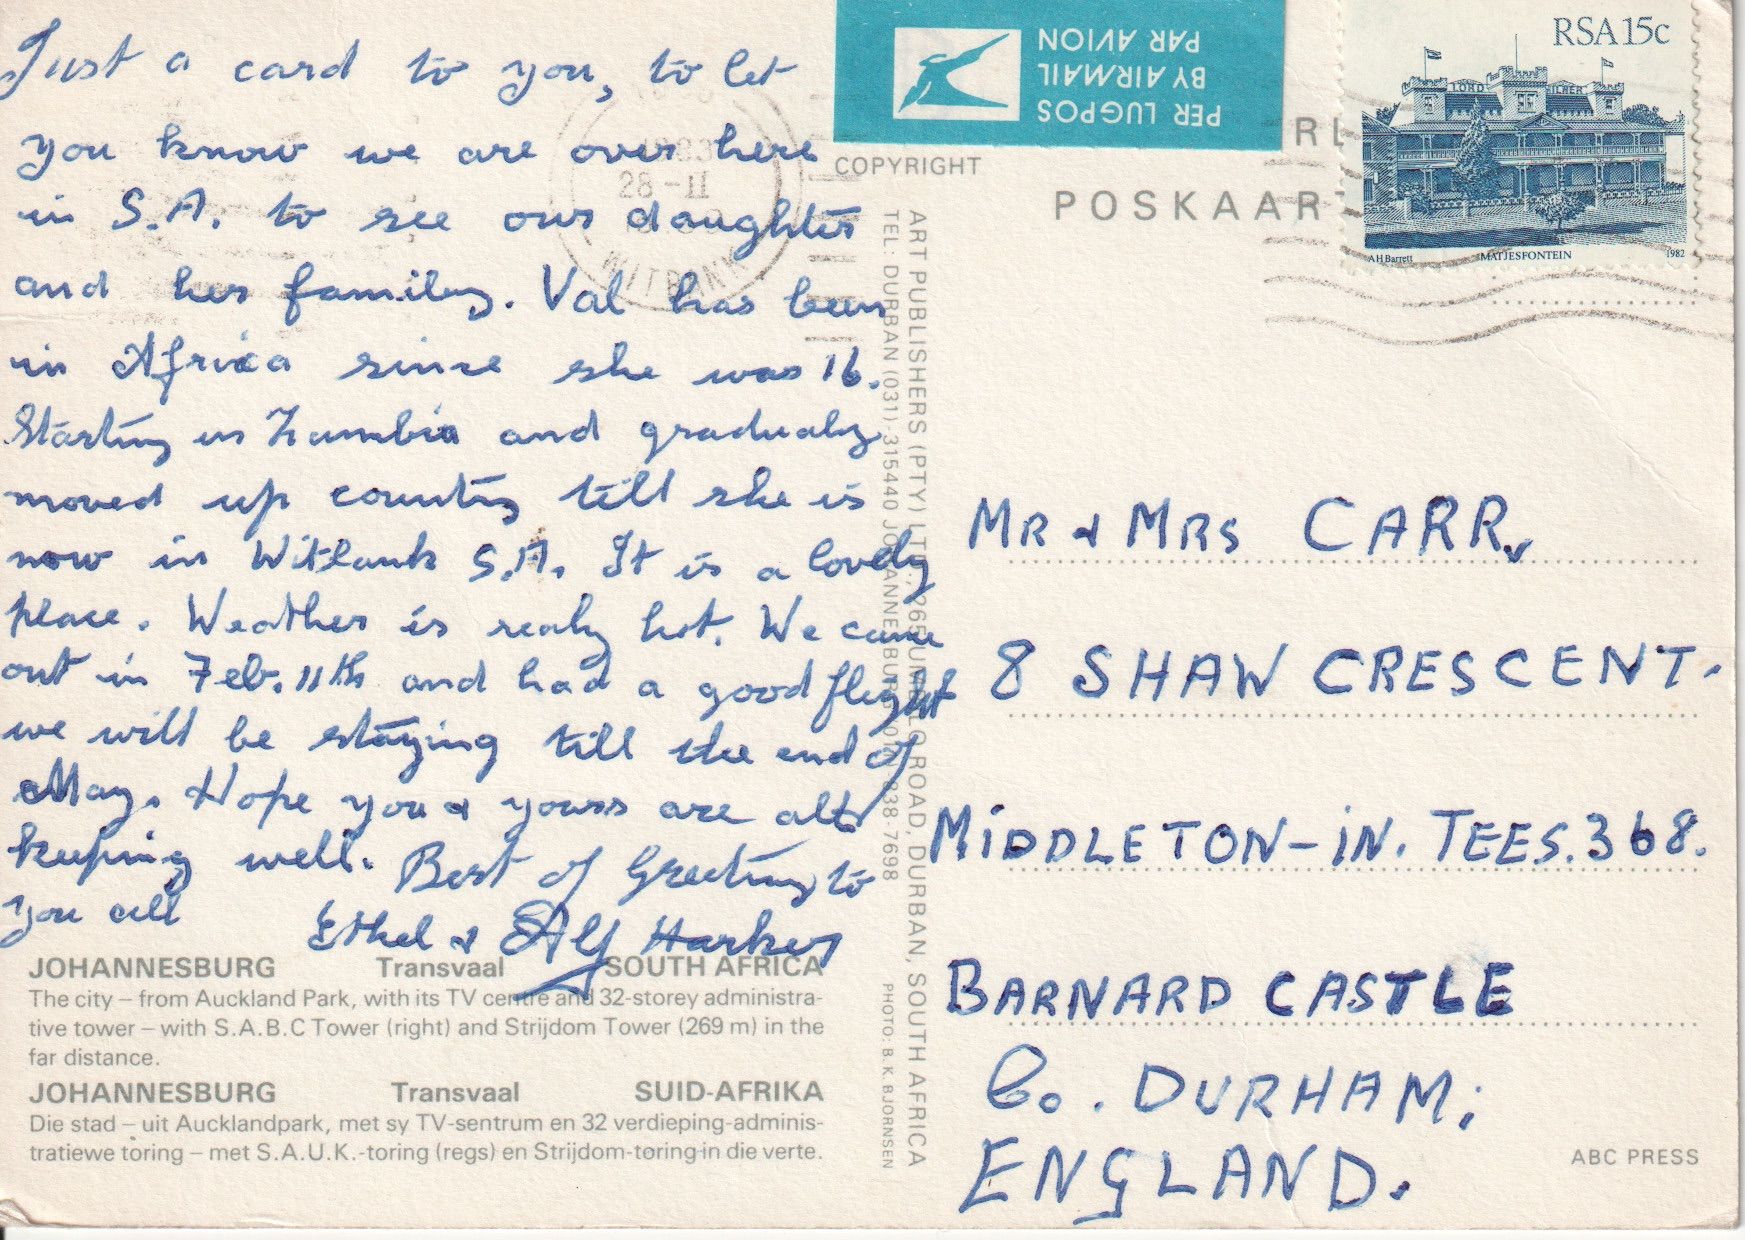 Just a card to you, to let
you know we are over here
in S.A. to see our daughter
and her family. Val has been
in Africa since she was 16.
Starting in Zambia and gradualy
moved up country till she is
now in Witbank S.A. It is a lovely
place. Weather is realy hot. We came
out in Feb. 11th and had a good flight
we will be staying till the end of
May. Hope you & yours are all
keeping well. Best of Greeting to
you all Ethel & Alf Harker
JOHANNESBURG Transvaal SOUTH AFRICA
The city – from Auckland Park, with its TV centre and 32-storey administra-
tive tower – with S.A.B.C Tower (right) and Strijdom Tower (269 m) in the
far distance.
JOHANNESBURG Transvaal SUID-AFRIKA
Die stad – uit Aucklandpark, met sy TV-sentrum en 32 verdieping-adminis-
tratiewe toring – met S.A.U.K.-toring (regs) en Strijdom-toring in die verte.
28 -II
WITBANK
PER LUGPOS
BY AIRMAIL
PAR AVION
COPYRIGHT
POSKAAR
RSA 15c
LORD MILNER
AH Barrett MATJESFONTEIN 1982
ART PUBLISHERS (PTY) LTD., 265 ROAD, DURBAN, SOUTH AFRICA
TEL: DURBAN (031)-315440 JOHANNESBURG 838-7698
PHOTO: B. K. BJORNSEN
MR & MRS CARR,
8 SHAW CRESCENT.
MIDDLETON-IN. TEES. 368.
BARNARD CASTLE
Co. DURHAM;
ENGLAND.
ABC PRESS